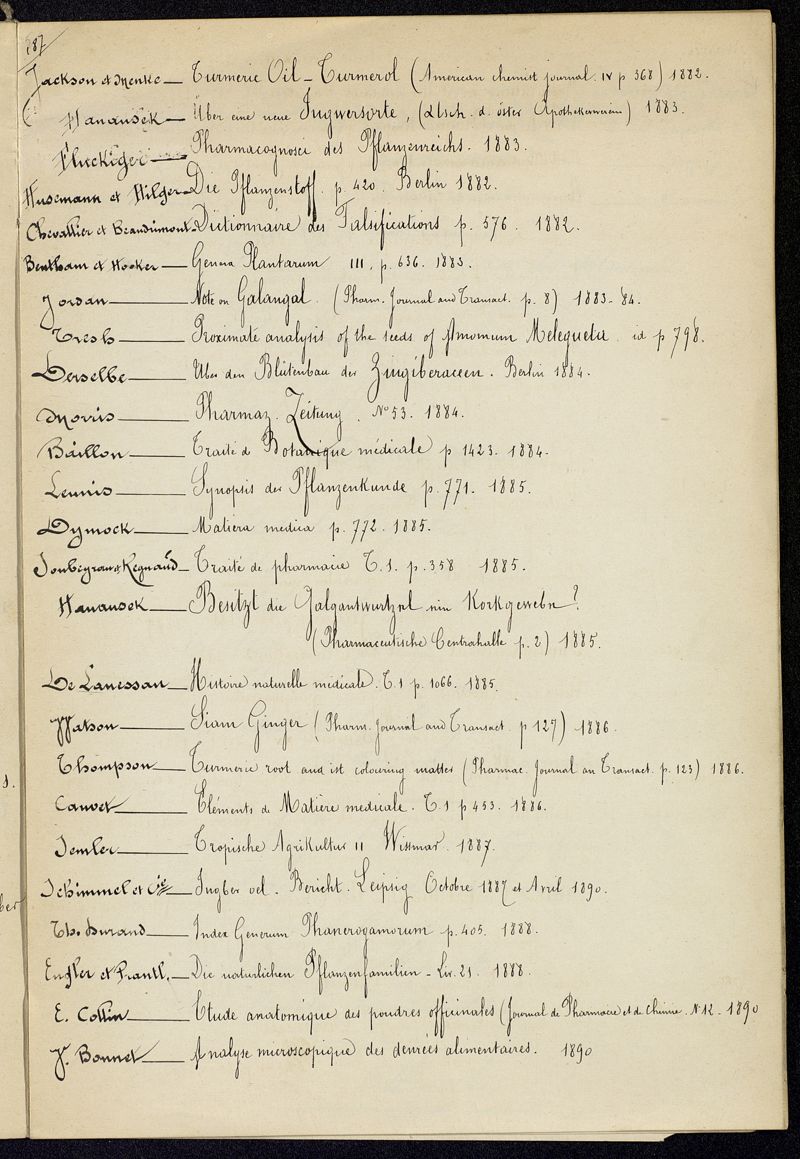 187
Jackson et Menke — Turmeric Oil — Turmerol (American chemist journal. IV p 368) 1882.
Hanausek — Über eine neue Ingwersorte, (Ztsch. d. öster Apothekerverein) 1883.
Flückiger — Pharmacognosie des Pflanzenreichs. 1883.
Husemann et Hilger — Die Pflanzenstoff. p. 420. Berlin 1882.
Chevallier et Beaudrimont — Dictionnaire des Falsifications p. 576. 1882.
Bentham et Hooker — Genera Plantarum III. p. 636. 1883.
Jordan — Note on Galangal. (Pharm. Journal and Transact. p. 8) 1883-84.
Tresh — Proximate analysis of the seeds of Amomum Melegueta. id p 798.
Derselbe — Über den Blütenbau der Zingiberaceen. Berlin 1884.
Morris — Pharmaz. Zeitung. No 53. 1884.
Baillon — Traité de Botanique médicale p 1423. 1884.
Leunis — Synopsis der Pflanzenkunde p. 771. 1885.
Dymock — Materia medica p. 772. 1885.
Soubeyran et Regnauld — Traité de pharmacie T. 1. p. 358 1885.
Hanausek — Besitzt die Galgantwurtzel ein Korkgewebe?
(Pharmaceutische Centrahalle p. 2) 1885.
De Lanessan — Histoire naturelle médicale. T. 1 p. 1066. 1885.
Watson — Siam Ginger (Pharm. Journal and Transact. p 127) 1886.
Thompson — Turmeric root and ist colouring matter (Pharmac. Journal an Transact. p. 123) 1886.
Cauvet — Eléments de Matière medicale. T. 1 p 453. 1886.
Semler — Tropische Agrikultur II Wissmar. 1887.
Schimmel et Cie — Ingber oel. Bericht. Leipsig Octobre 1887 et Avril 1890.
Th. Durand — Index Generum Phanerogamorum p. 405. 1888.
Engler et Prantl. — Die naturlichen Pflanzenfamilien — Liv. 21. 1888.
E. Collin — Etude anatomique des poudres officinales (Journal de Pharmacie et de Chimie. N 12. 1890
V. Bonnet — Analyse microscopique des denrées alimentaires. 1890